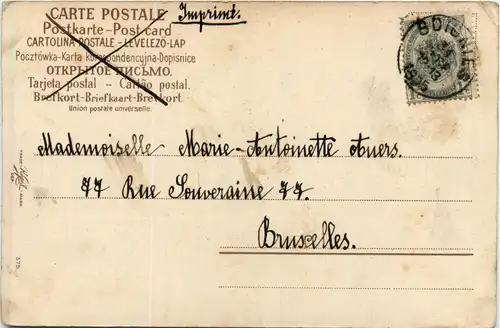 CARTE POSTALE
Imprimé.
Postkarte-Post card
CARTOLINA POSTALE - LEVELEZŐ-LAP
Pocztówka-Karta korespondencyjna-Dopisnice
ОТКРЫТОЕ ПИСЬМО.
Tarjeta postal - Cartão postal.
Brefkort-Briefkaart-Brevkort.
Union postale universelle.
Mademoiselle Marie-Antoinette Auers.
77 Rue Souveraine 77.
Bruxelles.